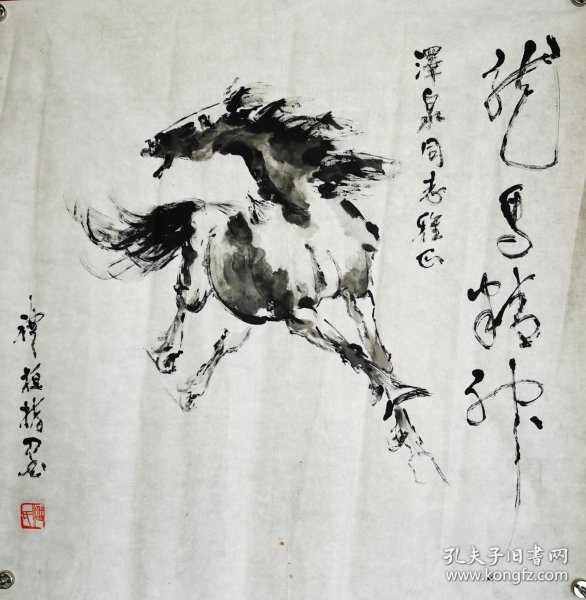 龙马精神
澤泉同志雅正
禪植指墨
孔夫子旧书网
www.kongfz.com